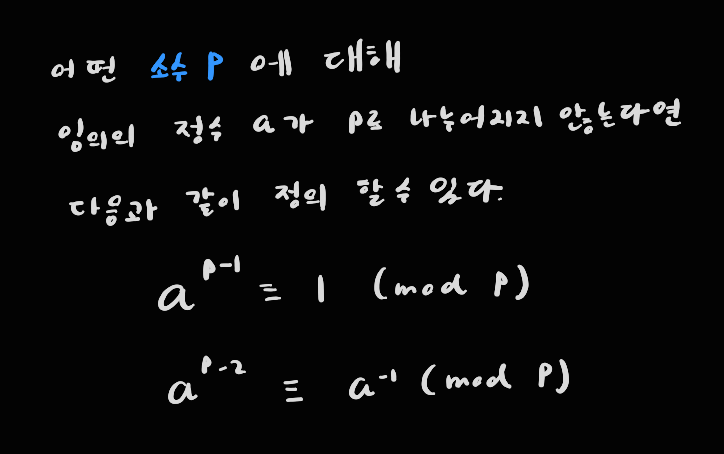 어떤 소수 P 에 대해
임의의 정수 a가 P로 나누어지지 않는다면
다음과 같이 정의 할 수 있다.
a^{P-1} ≡ 1 (mod P)
a^{P-2} ≡ a^{-1} (mod P)